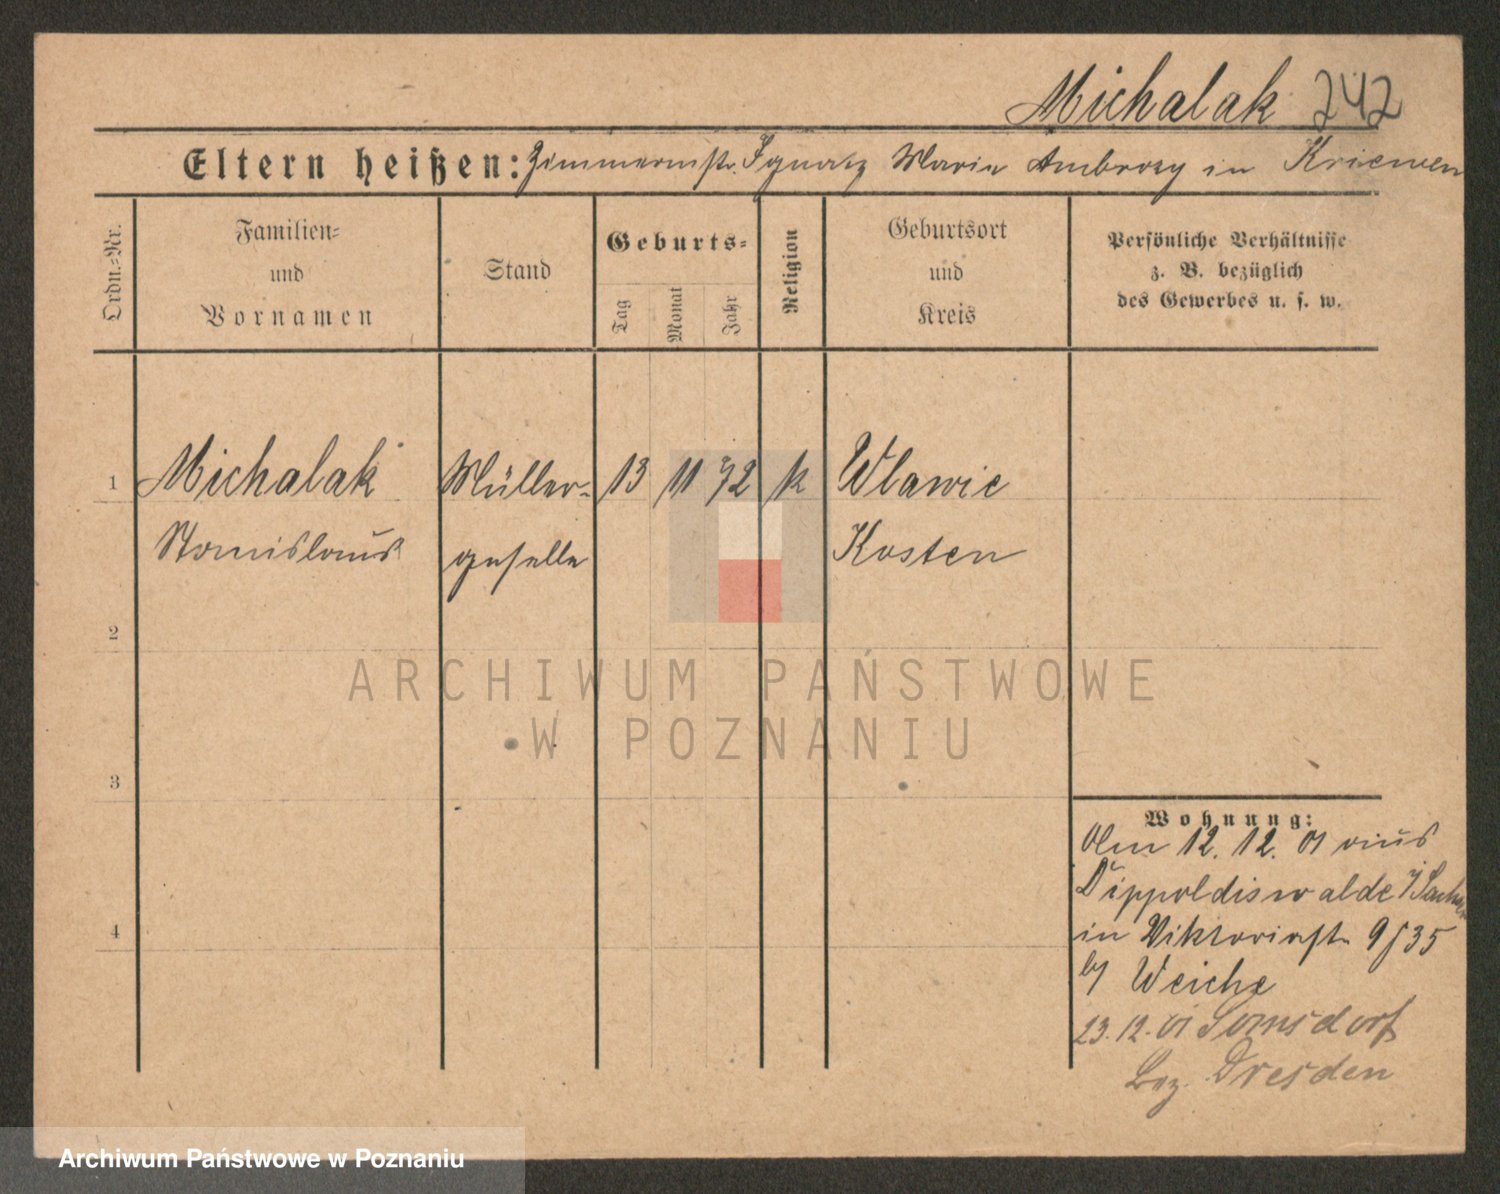 Michalak 242
Eltern heißen: Zimmermstr. Ignatz Marie Ambrozy in Kriewen
Ordn.-Nr.
Familien-
und
Vornamen
Stand
Geburts-
Tag
Monat
Jahr
Religion
Geburtsort
und
Kreis
Persönliche Verhältnisse
z. B. bezüglich
des Gewerbes u. s. w.
1 Michalak Müller- 13 11 72 k Wławie
Stanislaus geselle Kosten
2
ARCHIWUM PAŃSTWOWE
W POZNANIU
3
Wohnung:
Am 12. 12. 01 aus
Dippoldiswalde i/Sachsen
in Viktoriastr. 9/35
by Weiche
23. 12. 01 Somsdorf
Bez. Dresden
4
Archiwum Państwowe w Poznaniu